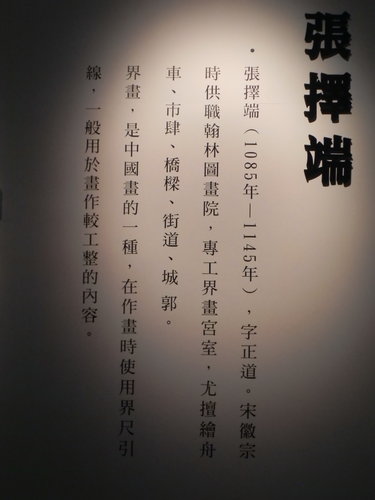 張擇端
・張擇端（1085年—1145年），字正道。宋徽宗
時供職翰林圖畫院，專工界畫宮室，尤擅繪舟
車、市肆、橋樑、街道、城郭。
界畫，是中國畫的一種，在作畫時使用界尺引
線，一般用於畫作較工整的內容。